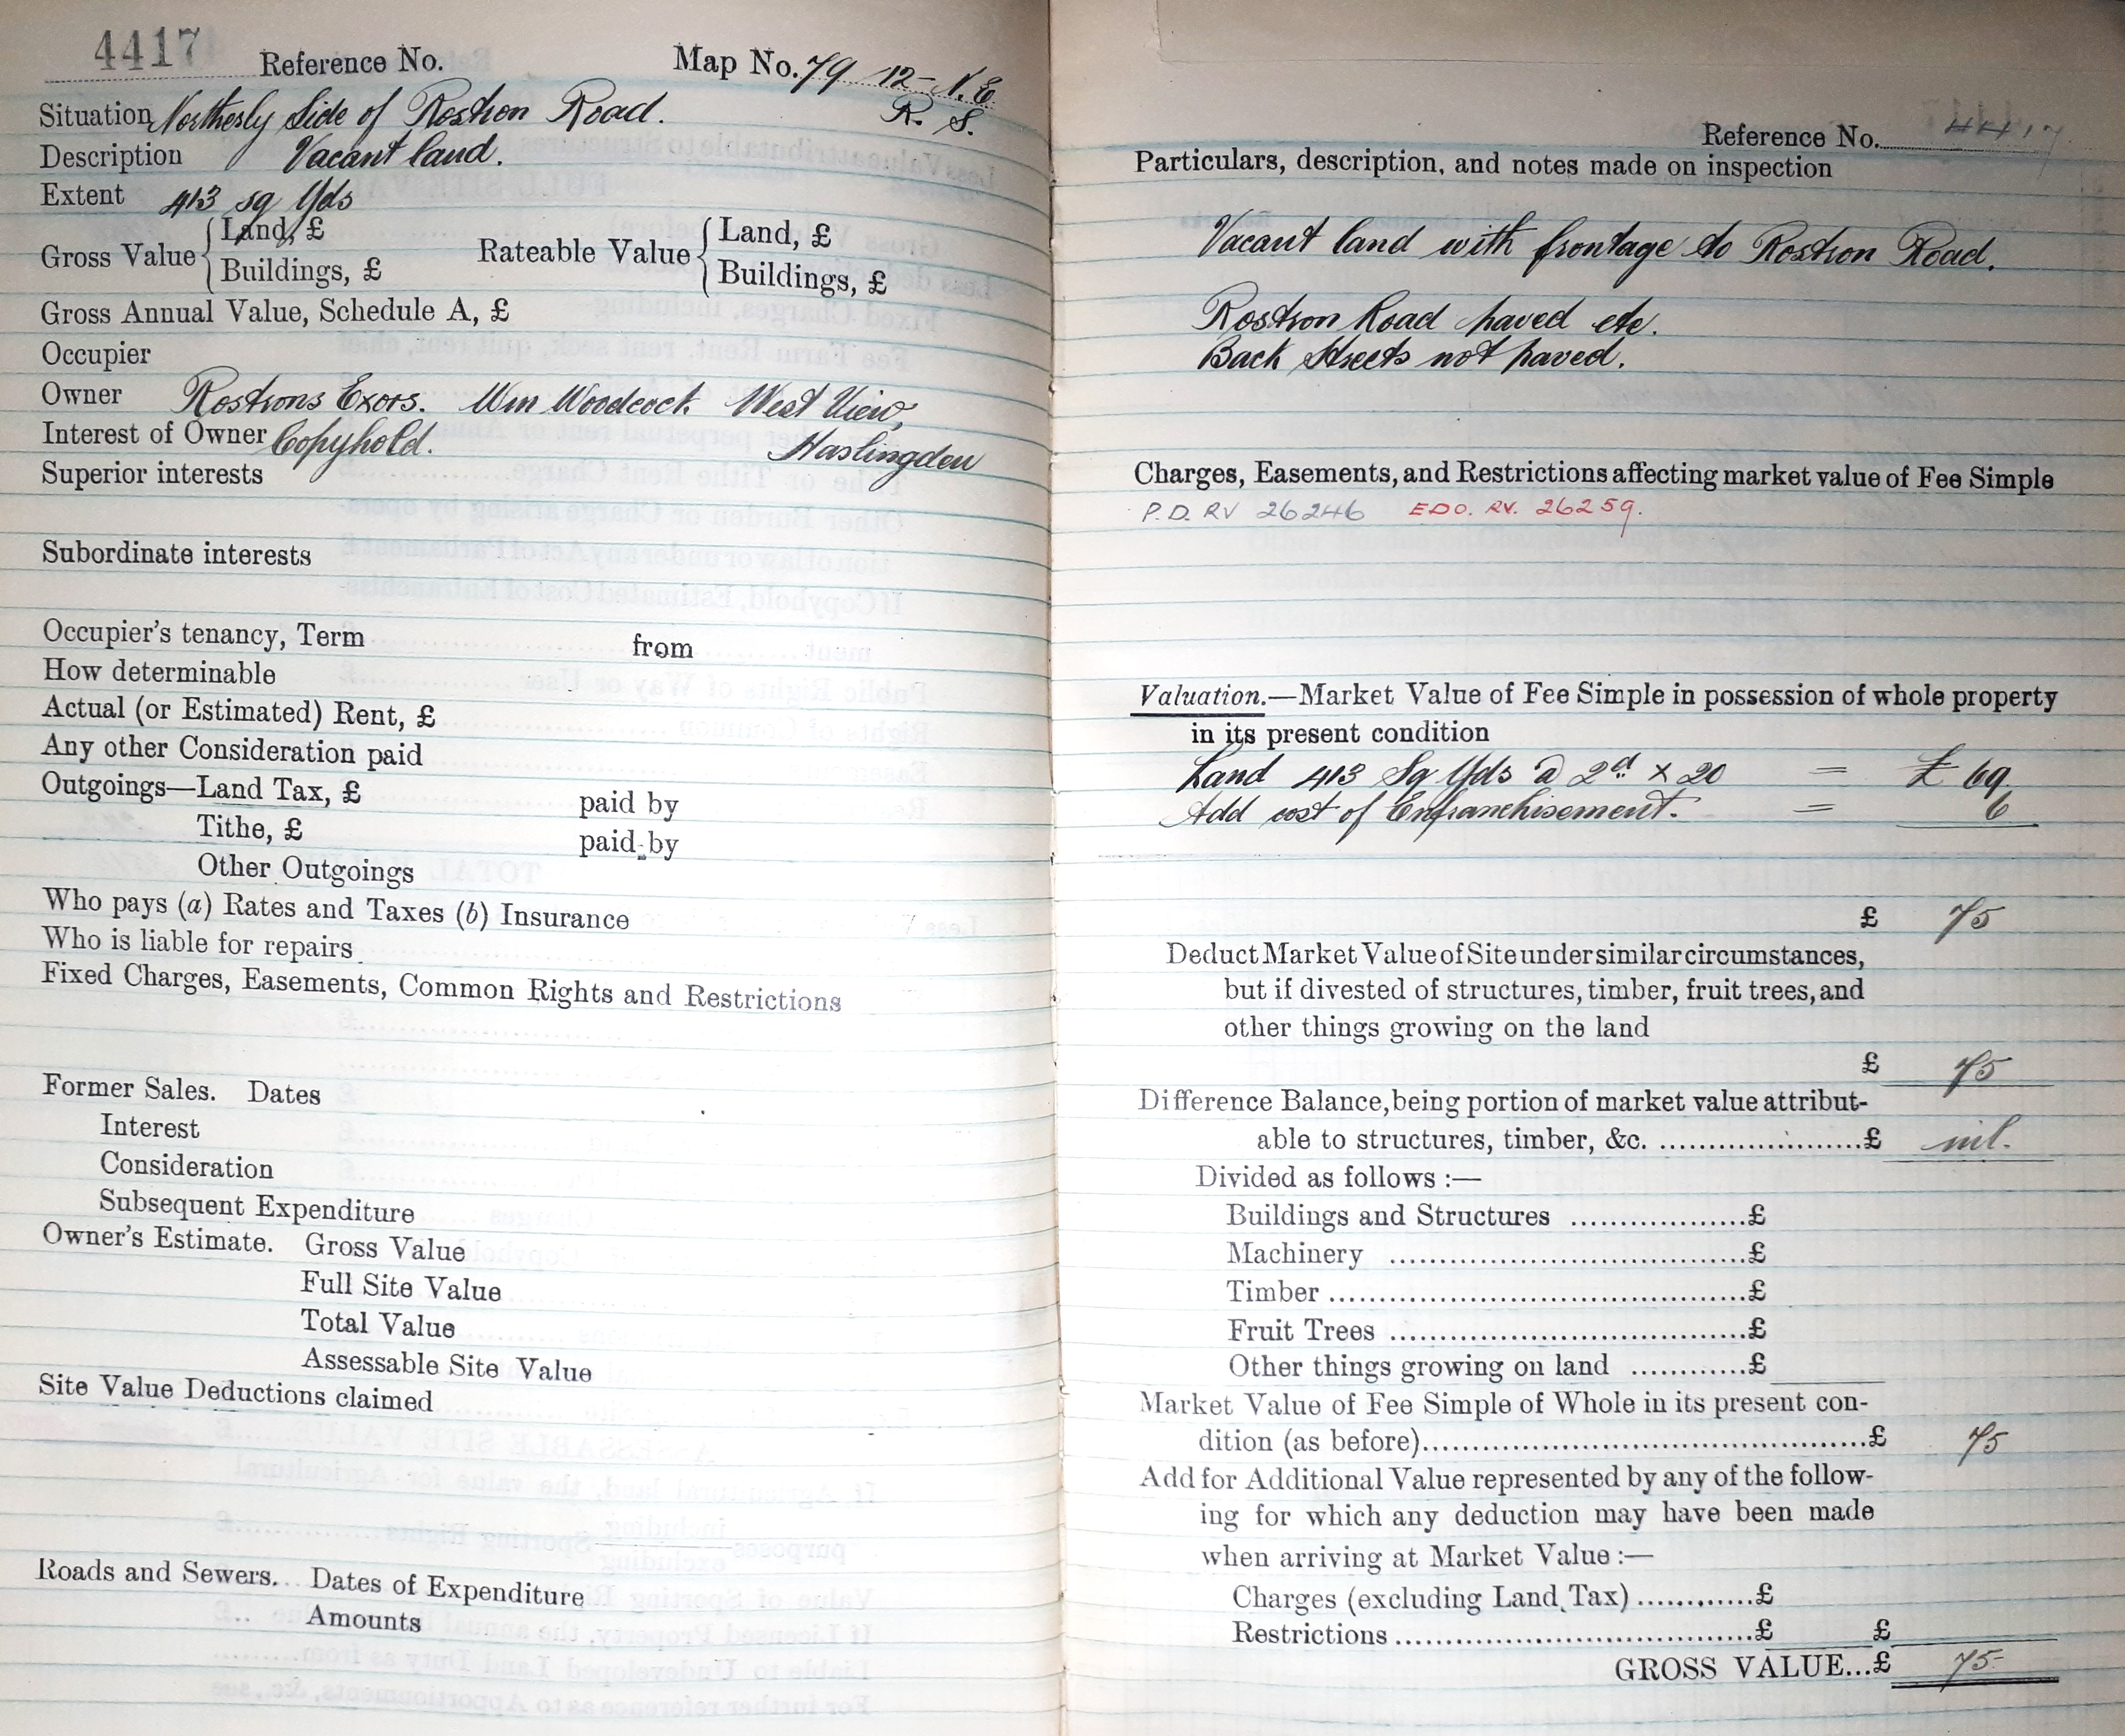 4417 Reference No. Map No. 79 12 N.E
R. S.
Situation Northerly Side of Rostron Road.
Description Vacant land.
Extent 413 sq Yds
Gross Value { Land, £ Rateable Value { Land, £
Buildings, £ Buildings, £
Gross Annual Value, Schedule A, £
Occupier
Owner Rostrons Exors. Wm Woodcock West View,
Haslingden
Interest of Owner Copyhold.
Superior interests
Subordinate interests
Occupier's tenancy, Term from
How determinable
Actual (or Estimated) Rent, £
Any other Consideration paid
Outgoings—Land Tax, £ paid by
Tithe, £ paid by
Other Outgoings
Who pays (a) Rates and Taxes (b) Insurance
Who is liable for repairs
Fixed Charges, Easements, Common Rights and Restrictions
Former Sales. Dates
Interest
Consideration
Subsequent Expenditure
Owner's Estimate. Gross Value
Full Site Value
Total Value
Assessable Site Value
Site Value Deductions claimed
Roads and Sewers. Dates of Expenditure
Amounts
Reference No. 4417
Particulars, description, and notes made on inspection
Vacant land with frontage to Rostron Road.
Rostron Road paved etc.
Back Streets not paved.
Charges, Easements, and Restrictions affecting market value of Fee Simple
P.D. RV 26246 EDO. RV. 26259.
Valuation.—Market Value of Fee Simple in possession of whole property
in its present condition
Land 413 Sq Yds @ 2d x 20 = £ 69
Add cost of Enfranchisement. = 6
£ 75
Deduct Market Value of Site under similar circumstances,
but if divested of structures, timber, fruit trees, and
other things growing on the land
£ 75
Difference Balance, being portion of market value attribut-
able to structures, timber, &c. ......................£ nil.
Divided as follows :—
Buildings and Structures ...................£
Machinery .......................................£
Timber ..............................................£
Fruit Trees .......................................£
Other things growing on land ............£
Market Value of Fee Simple of Whole in its present con-
dition (as before).................................................£ 75
Add for Additional Value represented by any of the follow-
ing for which any deduction may have been made
when arriving at Market Value :—
Charges (excluding Land Tax) ............£
Restrictions .......................................£ £
GROSS VALUE...£ 75